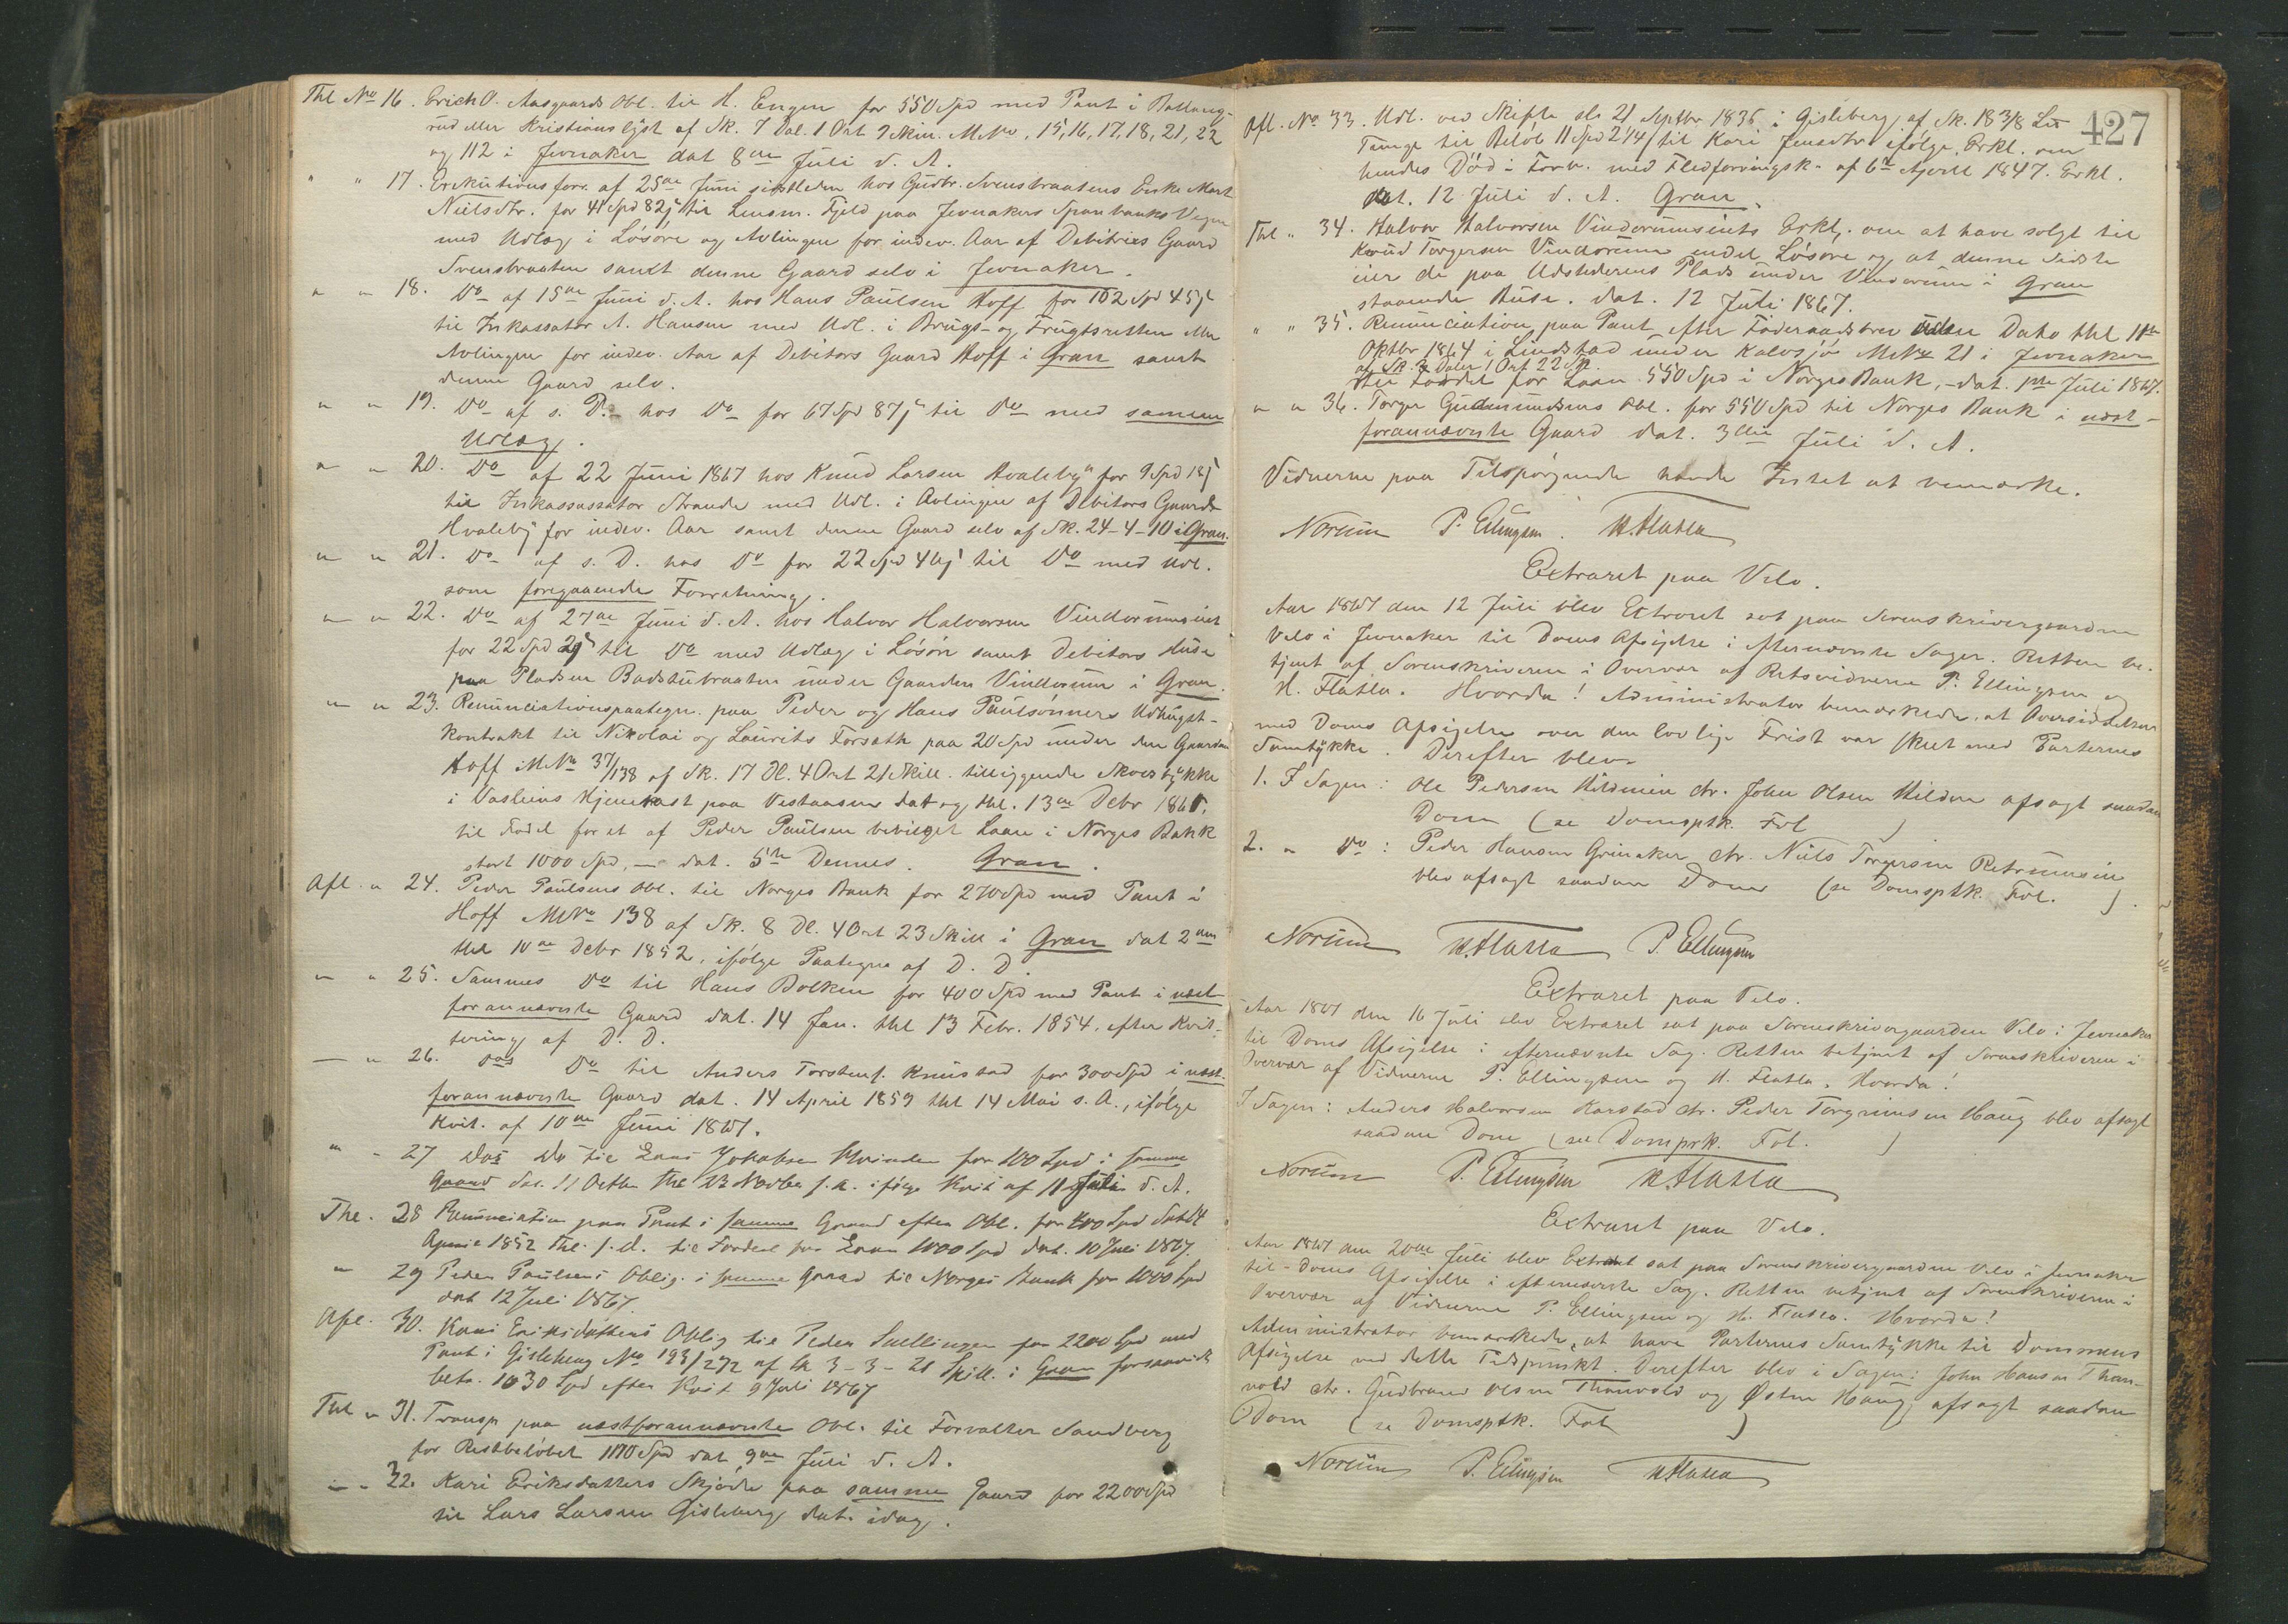 Thl No 16. Erich O. Aasgaards Obl. til H. Engen for 550 Spd med Pant i Ballang-
rud eller Kristianslyst af Sk. 7 Dal. 1 Ort 9 Skin. MNo, 15, 16, 17, 18, 21, 22
og 112 i Jevnaker dat 8de Juli d. A.
" " 17. Exekutionsforr. af 25de Juni sidstleden hos Gudbr. Svensbraatens Enke Marit
Nielsdtr. for 41 Spd 82 s til Lensm. Fjeld paa Jevnakers Sparebanks Vegne
med Udlæg i Løsøre og Avlingen for indev. Aar af Debitrices Gaard
Svensbraaten samt denne Gaard selv i Jevnaker.
" " 18. Do af 15de Juni d. A. hos Hans Paulsen Hoff for 102 Spd 45 s
til Inkassator A. Hansen med Udl. i Brugs- og Frugtsretten eller
Avlingen for indev. Aar af Debitors Gaard Hoff i Gran samt
denne Gaard selv.
" " 19. Do af s. D. hos Do for 67 Spd 87 s til Do med samme
Udlæg.
" " 20. Do af 22 Juni 1867 hos Knud Larsen Hvaleby for 9 Spd 18 s
til Inkassassator Strande med Udl. i Avlingen af Debitors Gaard
Hvaleby for indev. Aar samt denne Gaard selv af Sk. 24-4-10 i Gran.
" " 21. Do af s. D. hos Do for 22 Spd 46 s til Do med Udl.
som foregaaende Forretning.
" " 22. Do af 27de Juni d. A. hos Halvor Halvorsen Vindorumseiet
for 22 Spd 2 s til Do med Udlæg i Løsøre samt Debitors Huse
paa Pladsen Badstubraaten under Gaarden Vindorum i Gran.
" " 23. Renunciationspaategn. paa Peder og Hans Paulsønners Udhugst-
kontrakt til Nikolai og Laurits Forsøth paa 20 Spd under den Gaarden
Hoff MNo 37/138 af Sk. 17 Dl. 4 Ort 21 Skill. tilliggende Skovstykke
i Vasliens Hjemrast paa Vestaasen dat og thl. 13de Debr 1865,
til Fodel for et af Peder Paulsen bevilget Laan i Norges Bank
stort 1000 Spd, — dat. 5te Dennes. Gran.
Afl. " 24. Peder Paulsens Obl. til Norges Bank for 270 Spd med Pant i
Hoff MNo 138 af Sk. 8 Dl. 4 Ort 23 Skill i Gran dat 2den
thl 10de Debr 1852, ifølge Paategn af D. D.
" " 25. Sammes Do til Hans Bolken for 400 Spd med Pant i næst-
forannævnte Gaard dat. 14 Jan. thl 13 Febr. 1854. efter Kvit-
tering af D. D.
— " 26. Dos Do til Anders Torstens. Knustad for 300 Spd i næst-
forannævnte Gaard dat. 14 April 1859 thl 14 Mai s. A., ifølge
Kvit. af 10de Juni 1867.
" " 27 Dos Do til Lars Jokobsen Hvinden for 100 Spd i samme
Gaard dat. 11 Octbr Thl 23 Novbr s. A. ifølge Kvit af 11 Juli d. A.
Thl. 28 Renunciation paa Pant i samme Gaard efter Obl. for 400 Spd dat 24
April 1852 Thl. s. d. til Fordeel for Laan 1000 Spd dat. 10 Juli 1867.
" 29 Peder Paulsens Oblig. i samme Gaard til Norges Bank for 1000 Spd
dat 12 Juli 1867.
Afl. 30. Kari Eriksdatters Oblig til Peder Snellingen for 2200 Spd med
Pant i Gisleberg No 193/272 af Sk 3-3-21 Skill. i Gran forsaavidt
betr. 1030 Spd efter Kvit 9 Juli 1867
Thl " 31. Transp paa næstforannævnte Obl. til Forvalter Sandberg
for Restbeløbet 1170 Spd dat 9de Juli d. A.
" " 32. Kari Eriksdatters Skjøde paa samme Gaard for 2200 Spd
til Lars Larsen Gisleberg dat. idag.
427
Afl. No 33. Udl. ved Skifte sls 21 Septbr 1835 i Gisleberg af Sk. 18 3/8 Lis
Tunge til Beløb 11 Spd 2 1/4 s til Kari Jensdtr ifølge Erkl. om
hendes Død i Forb. med Fledføringsk. af 6te April 1847. Erkl.
dat. 12 Juli d. A. Gran.
Thl " 34. Halvor Halvorsen Vindorumseiets Erkl. om at have solgt til
Knud Torgersen Vindorum endel Løsøre og at denne Sidste
eier de paa Udstederens Plads under Vindorum i Gran
staaende Huse. dat. 12 Juli 1867.
" " 35. Renunciation paa Pant efter Føderaadsbrev uden Dato thl 11te
Oktbr 1864 i Lindstad under Kalvsjø MNo 21 i Jevnaker
af Sk. 2 Daler 1 Ort 22 Sk.
til Fordel for Laan 550 Spd i Norges Bank, - dat. 1ste Juli 1867.
" " 36. Torger Gudmundsens Obl. for 550 Spd til Norges Bank i næst-
forannævnte Gaard dat. 3die Juli d. A.
Vidnerne paa Tilspørgende havde Intet at bemærke.
Norum P. Ellingsen. H. Flatla
Extraret paa Velo.
Aar 1867 den 12 Juli blev Extraret sat paa Sorenskrivergaarden
Velo i Jevnaker til Doms Afsigelse i efternævnte Sager. Retten be-
tjent af Sorenskriveren i Overvær af Retsvidnerne P. Ellingsen og
H. Flatla. Hvorda! Administrator bemærkede, at Oversiddelsen
med Doms Afsigelse over den lovlige Frist var skeet med Parternes
Samtykke. Derefter blev
1. I Sagen: Ole Pedersen Hildmen ctr. John Olsen Hilden afsagt saadan
Dom (se Domsptk. Fol )
2. " Do: Peder Hansen Grinaker ctr. Niels Torgersen Retrumseie
blev afsagt saadan Dom (se Domsptk. Fol. ).
Norum H. Flatla P. Ellingsen
Extraret paa Velo.
Aar 1867 den 16 Juli blev Extraret sat paa Sorenskrivergaarden Velo i Jevnaker
til Doms Afsigelse i efternævnte Sag. Retten betjent af Sorenskriveren i
Overvær af Vidnerne P. Ellingsen og H. Flatla. Hvorda!
I Sagen: Anders Halvorsen Karstad ctr. Peder Torgrimsen Haug blev afsagt
saadan Dom (se Domprk. Fol. )
Norum P. Ellingsen H. Flatla
Extraret paa Velo.
Aar 1867 den 20de Juli blev Extraret sat paa Sorenskrivergaarden Velo i Jevnaker
til Doms Afsigelse i efternævnte Sag. Retten betjent af Sorenskriveren i
Overvær af Vidnerne P. Ellingsen og H. Flatla. Hvorda!
Administrator bemærkede, at have Parternes Samtykke til Dommens
Afsigelse ved dette Tidspunkt. Derefter blev i Sagen: John Hansen Than-
vold ctr. Gudbrand Olsen Thanvold og Østen Haug afsagt saadan
Dom (se Domsptk. Fol )
Norum P. Ellingsen H. Flatla